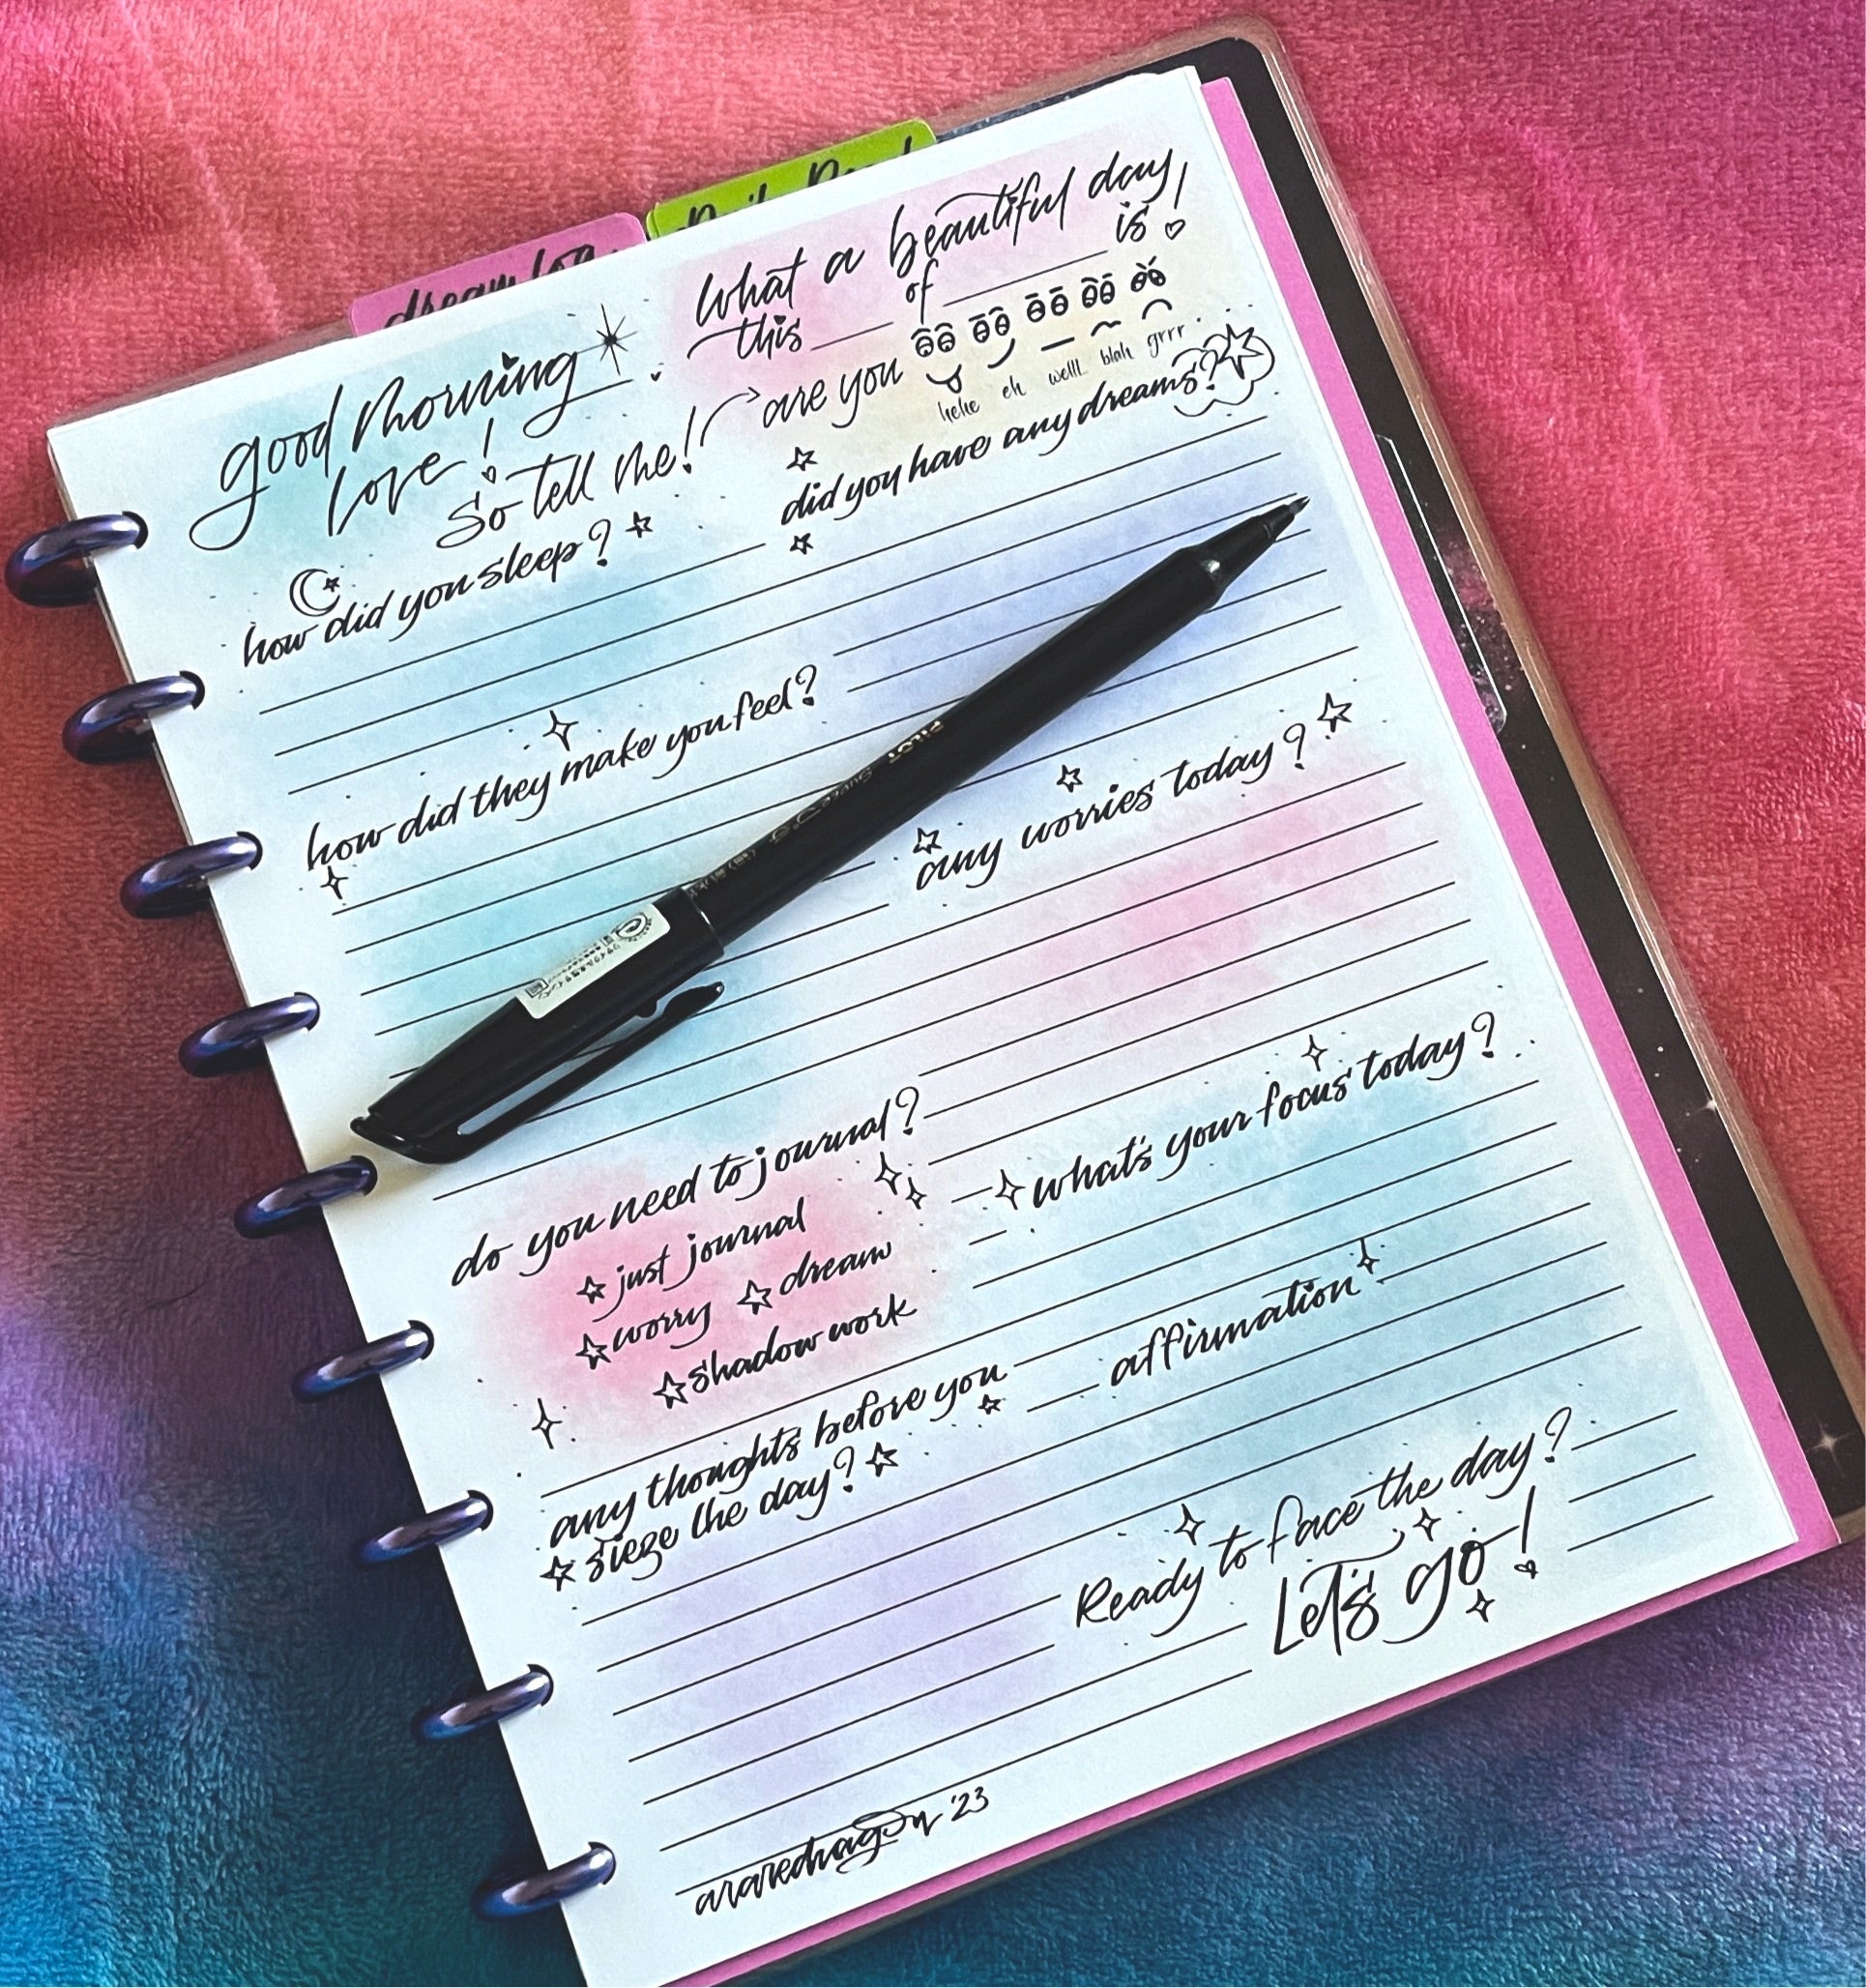 dream log
What a beautiful day
this ____ of ________ is!
good Morning
love!
So tell me!
are you
hehe eh welll blah grrr
how did you sleep?
did you have any dreams?
how did they make you feel?
any worries today?
PILOT
do you need to journal?
just journal
worry dream
shadow work
what's your focus today?
affirmation
any thoughts before you
sieze the day?
Ready to face the day?
Let's go!
araredragon '23